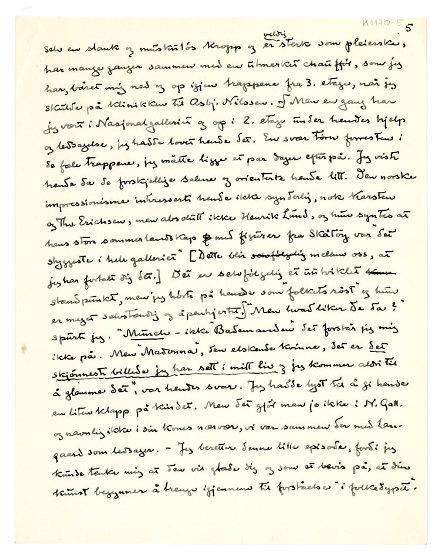 K1170-5
5
selv en slank og muskuløs kropp og er veldig sterk som pleierske,
har mange ganger sammen med en utmerket chauffør, som jeg
har, båret mig ned og op igjen trappene fra 3. etage, når jeg
skulde på klinikken til Asbj. Nilssen. Men en gang har
jeg vært i Nasjonalgalleriet og op i 2. etage under hendes hjelp
og ledsagelse, jeg hadde lovet hende det. En svær törn forresten i
de fæle trappene, jeg måtte ligge et par dager efterpå. Jeg viste
hende da de forskjellige salene og orienterte hende litt. Den norske
impressionisme interesserte hende ikke synderlig, nok Karsten
og Th. Erichsen, men absolutt ikke Henrik Lund, og hun syntes at
hans store sommerlandskap med figurer fra Skåtöy var "det
styggeste i hele galleriet" [Dette blir mellem oss, at
jeg har fortalt dig det.] Det er selvfølgelig et uutviklet
standpunkt, men jeg hörte på hende som "folkets röst" og hun
er meget selvstendig og åpenhjertig. "Men hvad liker De da?"
spurte jeg. "Munch – ikke Badem­ændene" det forstår jeg mig
ikke på. Men "Madonna", den elskende kvinne, det er det
skjønneste billede jeg har sett i mitt liv og jeg kommer aldri til
å glemme det", var hendes svar. Jeg hadde lyst til å gi hende
en liten klapp på kinnet. Men det gjör man jo ikke i N. Gall.
og navnlig ikke i sin kones nærvær, vi var sammen der med Lan-
gaard som ledsager. – Jeg beretter denne lille episode, fordi jeg
kunde tenke mig at den vil glede dig og som et bevis på, at din
kunst begynner å trenge igjennem til forståelse "i folkedypet".